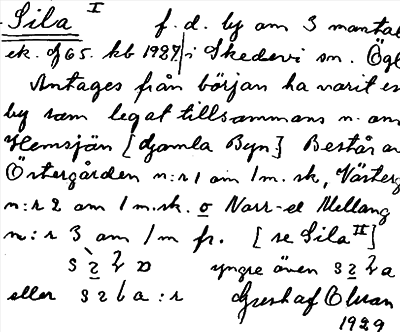 Sila I f. d. by om 3 mantal
ek. bf 65. kb 1987 i Skedevi sn. Ögl
Antages från början ha varit en
by som legat tillsammans n. om
Hemsjön [Gamla Byn] Består av
Östergården n:r 1 om 1 m. sk, Västerg
n:r 2 om 1 m. sk. o Norr- el Mellang
n:r 3 om 1 m fr. [se Sila II]
yngre även
eller
1929